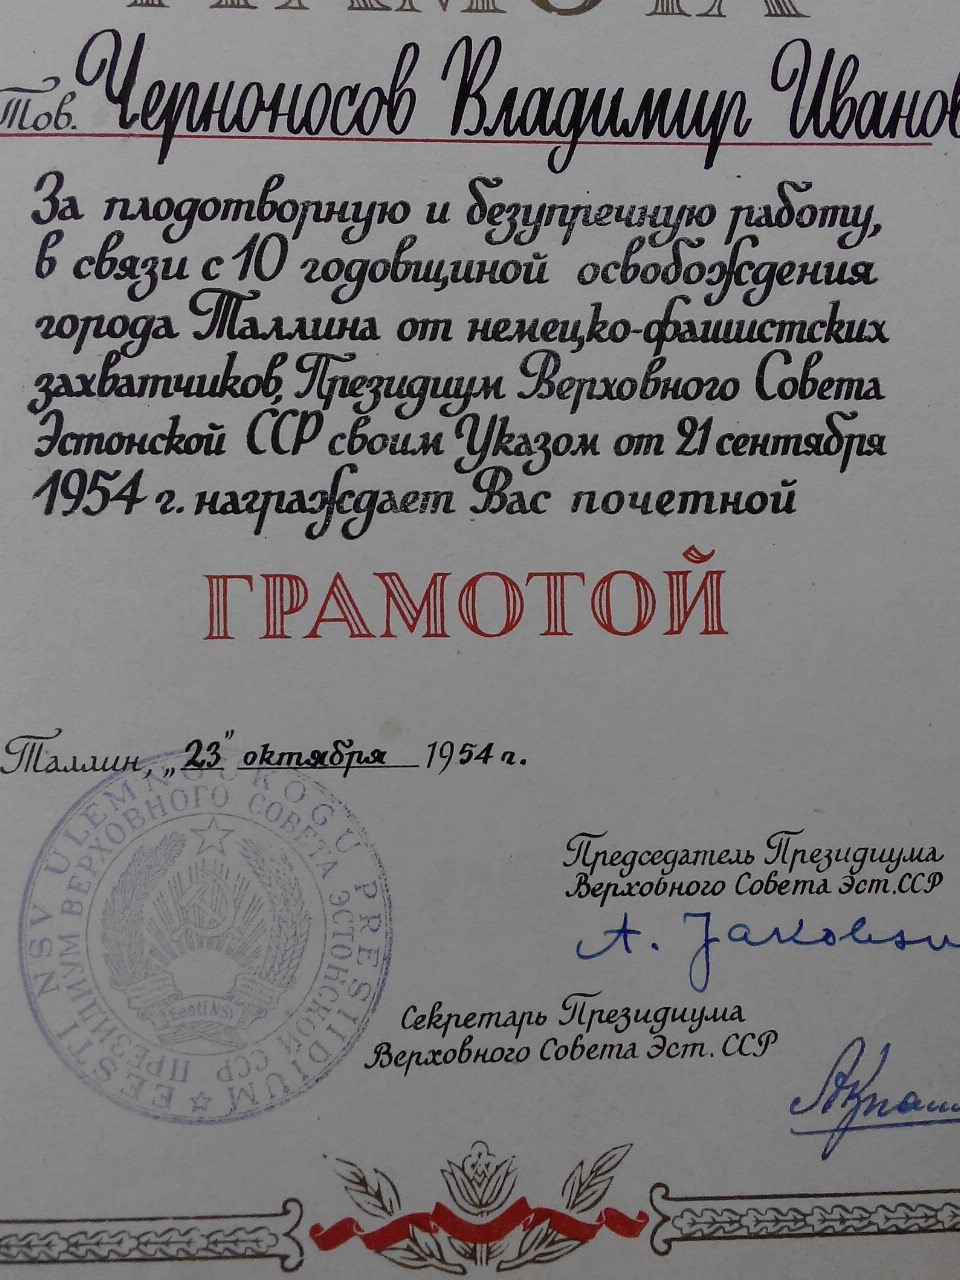 ГРАМОТА
Тов. Черноносов Владимир Иванов
За плодотворную и безупречную работу,
в связи с 10 годовщиной освобождения
города Таллина от немецко-фашистских
захватчиков, Президиум Верховного Совета
Эстонской ССР своим Указом от 21 сентября
1954 г. награждает Вас почетной
ГРАМОТОЙ
Таллин, „23" октября 1954 г.
EESTI NSV ÜLEMNÕUKOGU PRESIIDIUM
ПРЕЗИДИУМ ВЕРХОВНОГО СОВЕТА ЭСТОНСКОЙ ССР
Eesti NSV
Председатель Президиума
Верховного Совета Эст.ССР
А. Jakobson
Секретарь Президиума
Верховного Совета Эст. ССР